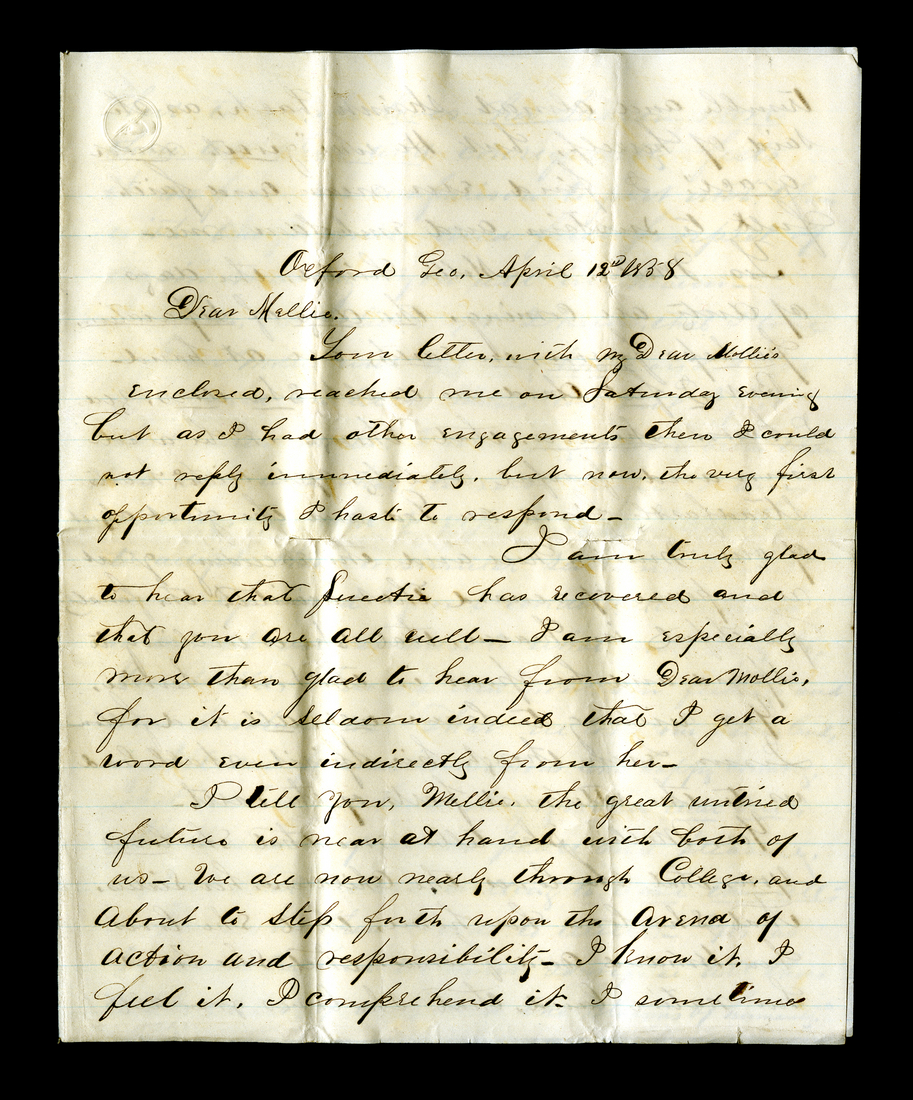 Oxford Geo, April 12th 1858
Dear Mellie.
Your letter, with my Dear Mollie's
enclosed, reached me on Saturday evening
but as I had other engagements then I could
not reply immediately, but now, the very first
opportunity I haste to respond—
I am truly glad
to hear that has recovered and
that you are all well— I am especially
more than glad to hear from Dear Mollie,
for it is seldom indeed that I get a
word even indirectly from her—
I tell you, Mellie, the great untried
future is near at hand with both of
us— We are now nearly through College, and
about to step forth upon the arena of
action and responsibility— I know it, I
feel it, I comprehend it— I sometimes